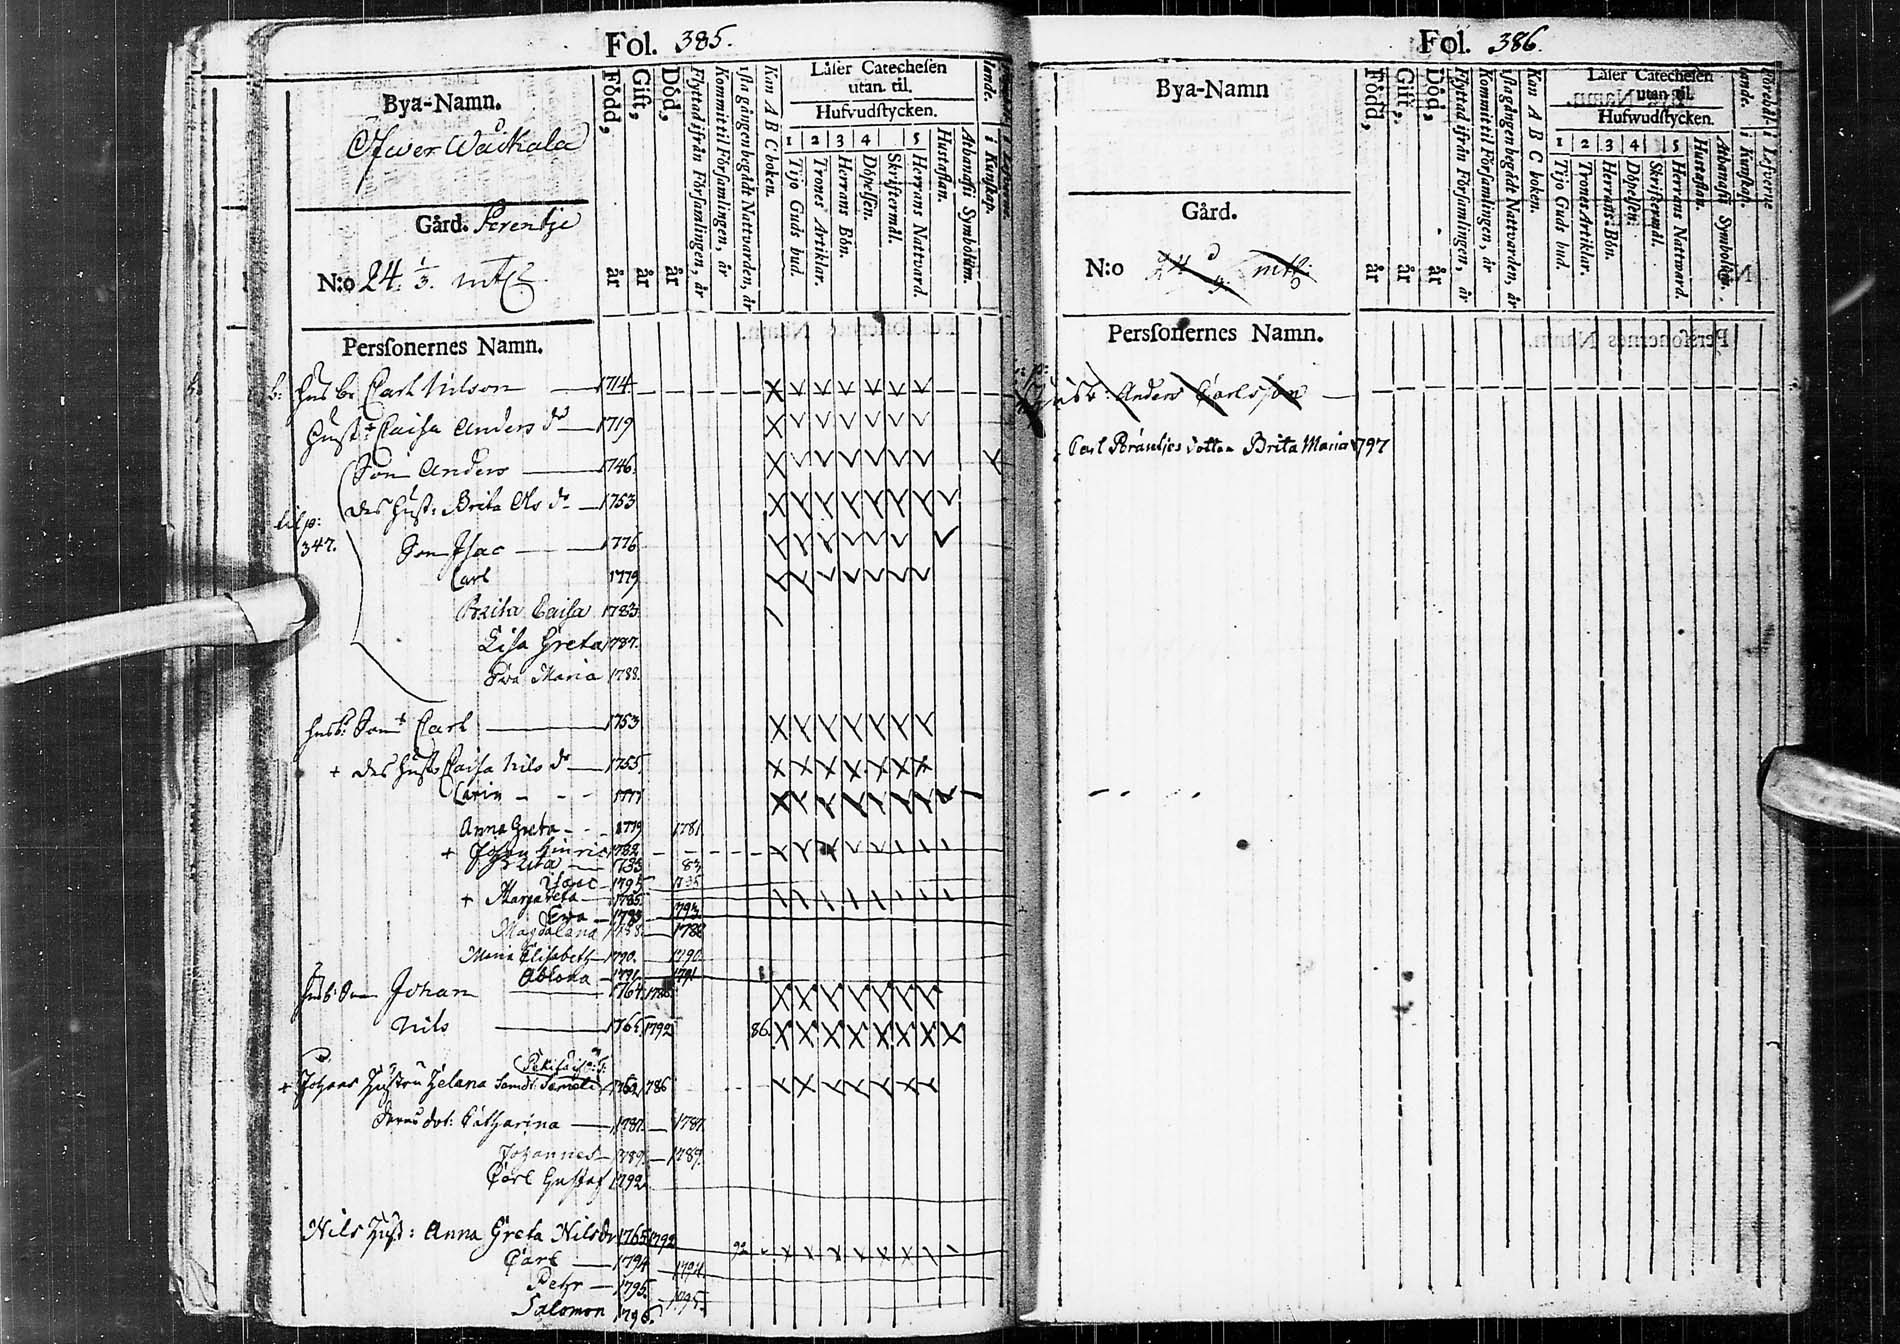 Fol. 385.
Bya-Namn.
Gård. Perentje
N:o 24. 1/3. mtl
Personernes Namn.
Född, år
Gift, år
Död, år
Flyttad ifrån Församlingen, år
Kommit til Församlingen, år
1sta gången begådt Nattvarden, år
Kan A B C boken.
Läser Catechesen utan til.
Hufvudstycken.
1 2 3 4 5
Tijo Guds bud.
Trones Artiklar.
Herrans Bön.
Döpelsen.
Skriftermål.
Herrans Nattvard.
Hustaflan.
Athanasii Symbolum.
i Kunskap.
b: Husb: Carl Nilson 1714
Hust: Caisa Anders dr 1719
Son Anders 1746
Des Hust: Brita Ols dr 1753
til p: 347.
Son Isac 1776
Carl 1779
Brita Caisa 1783
Lisa Greta 1787.
Eva Maria 1788.
Husb: Son Carl 1753
+ des Hust: Caisa Nils dr 1755
Carin 1777
Anna Greta 1779 1781
+ Johan Hinric 1782
1783 83
Isaac 1795
+ Margareta 1785
Ewa 1793.
Magdalena 1788. 1788
Maria Elisabeth 1790. 1790
1791 1791
Husb: Son Johan 1764 1786
Nils 1765 1792 86.
+ Johans Hustru Helena 1762 1786
Deras dot: Catharina 1787. 1787.
Johannes 1789. 1789.
Carl Gustaf 1792
Nils Hust: Anna Greta Nilsdr 1765 1792 92
Carl 1794 1794.
Petr 1795. 1795.
Salomon 1796.
Fol. 386.
Bya-Namn
Gård.
N:o
Personernes Namn.
Född, år
Gift, år
Död, år
Flyttad ifrån Församlingen, år
Kommit til Församlingen, år
1sta gången begådt Nattvarden, år
Kan A B C boken.
Läser Catechesen utan til.
Hufwudstycken.
1 2 3 4 5
Tijo Guds bud.
Trones Artiklar.
Herrans Bön.
Döpelsen.
Skriftermål.
Herrans Nattvard.
Hustaflan.
Athanasii Symbolum.
i Kunskap.
i Lefverne
Husb: Anders Carlsson
Carl dotter Brita Maria 1797